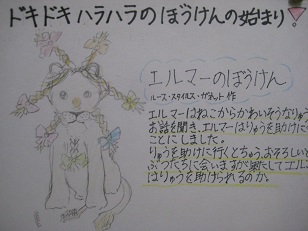 ドキドキハラハラのぼうけんの始まり!
エルマーのぼうけん
ルース・スタイルス・ガネット 作
エルマーはねこからかわいそうなりゅう
お話を聞き、エルマーはりゅうを助けに
ことにしました。
りゅうを助けに行くとちゅう、おそろしい
ぶつたちに会いますが果たしてエル
はりゅうを助けられるのか。